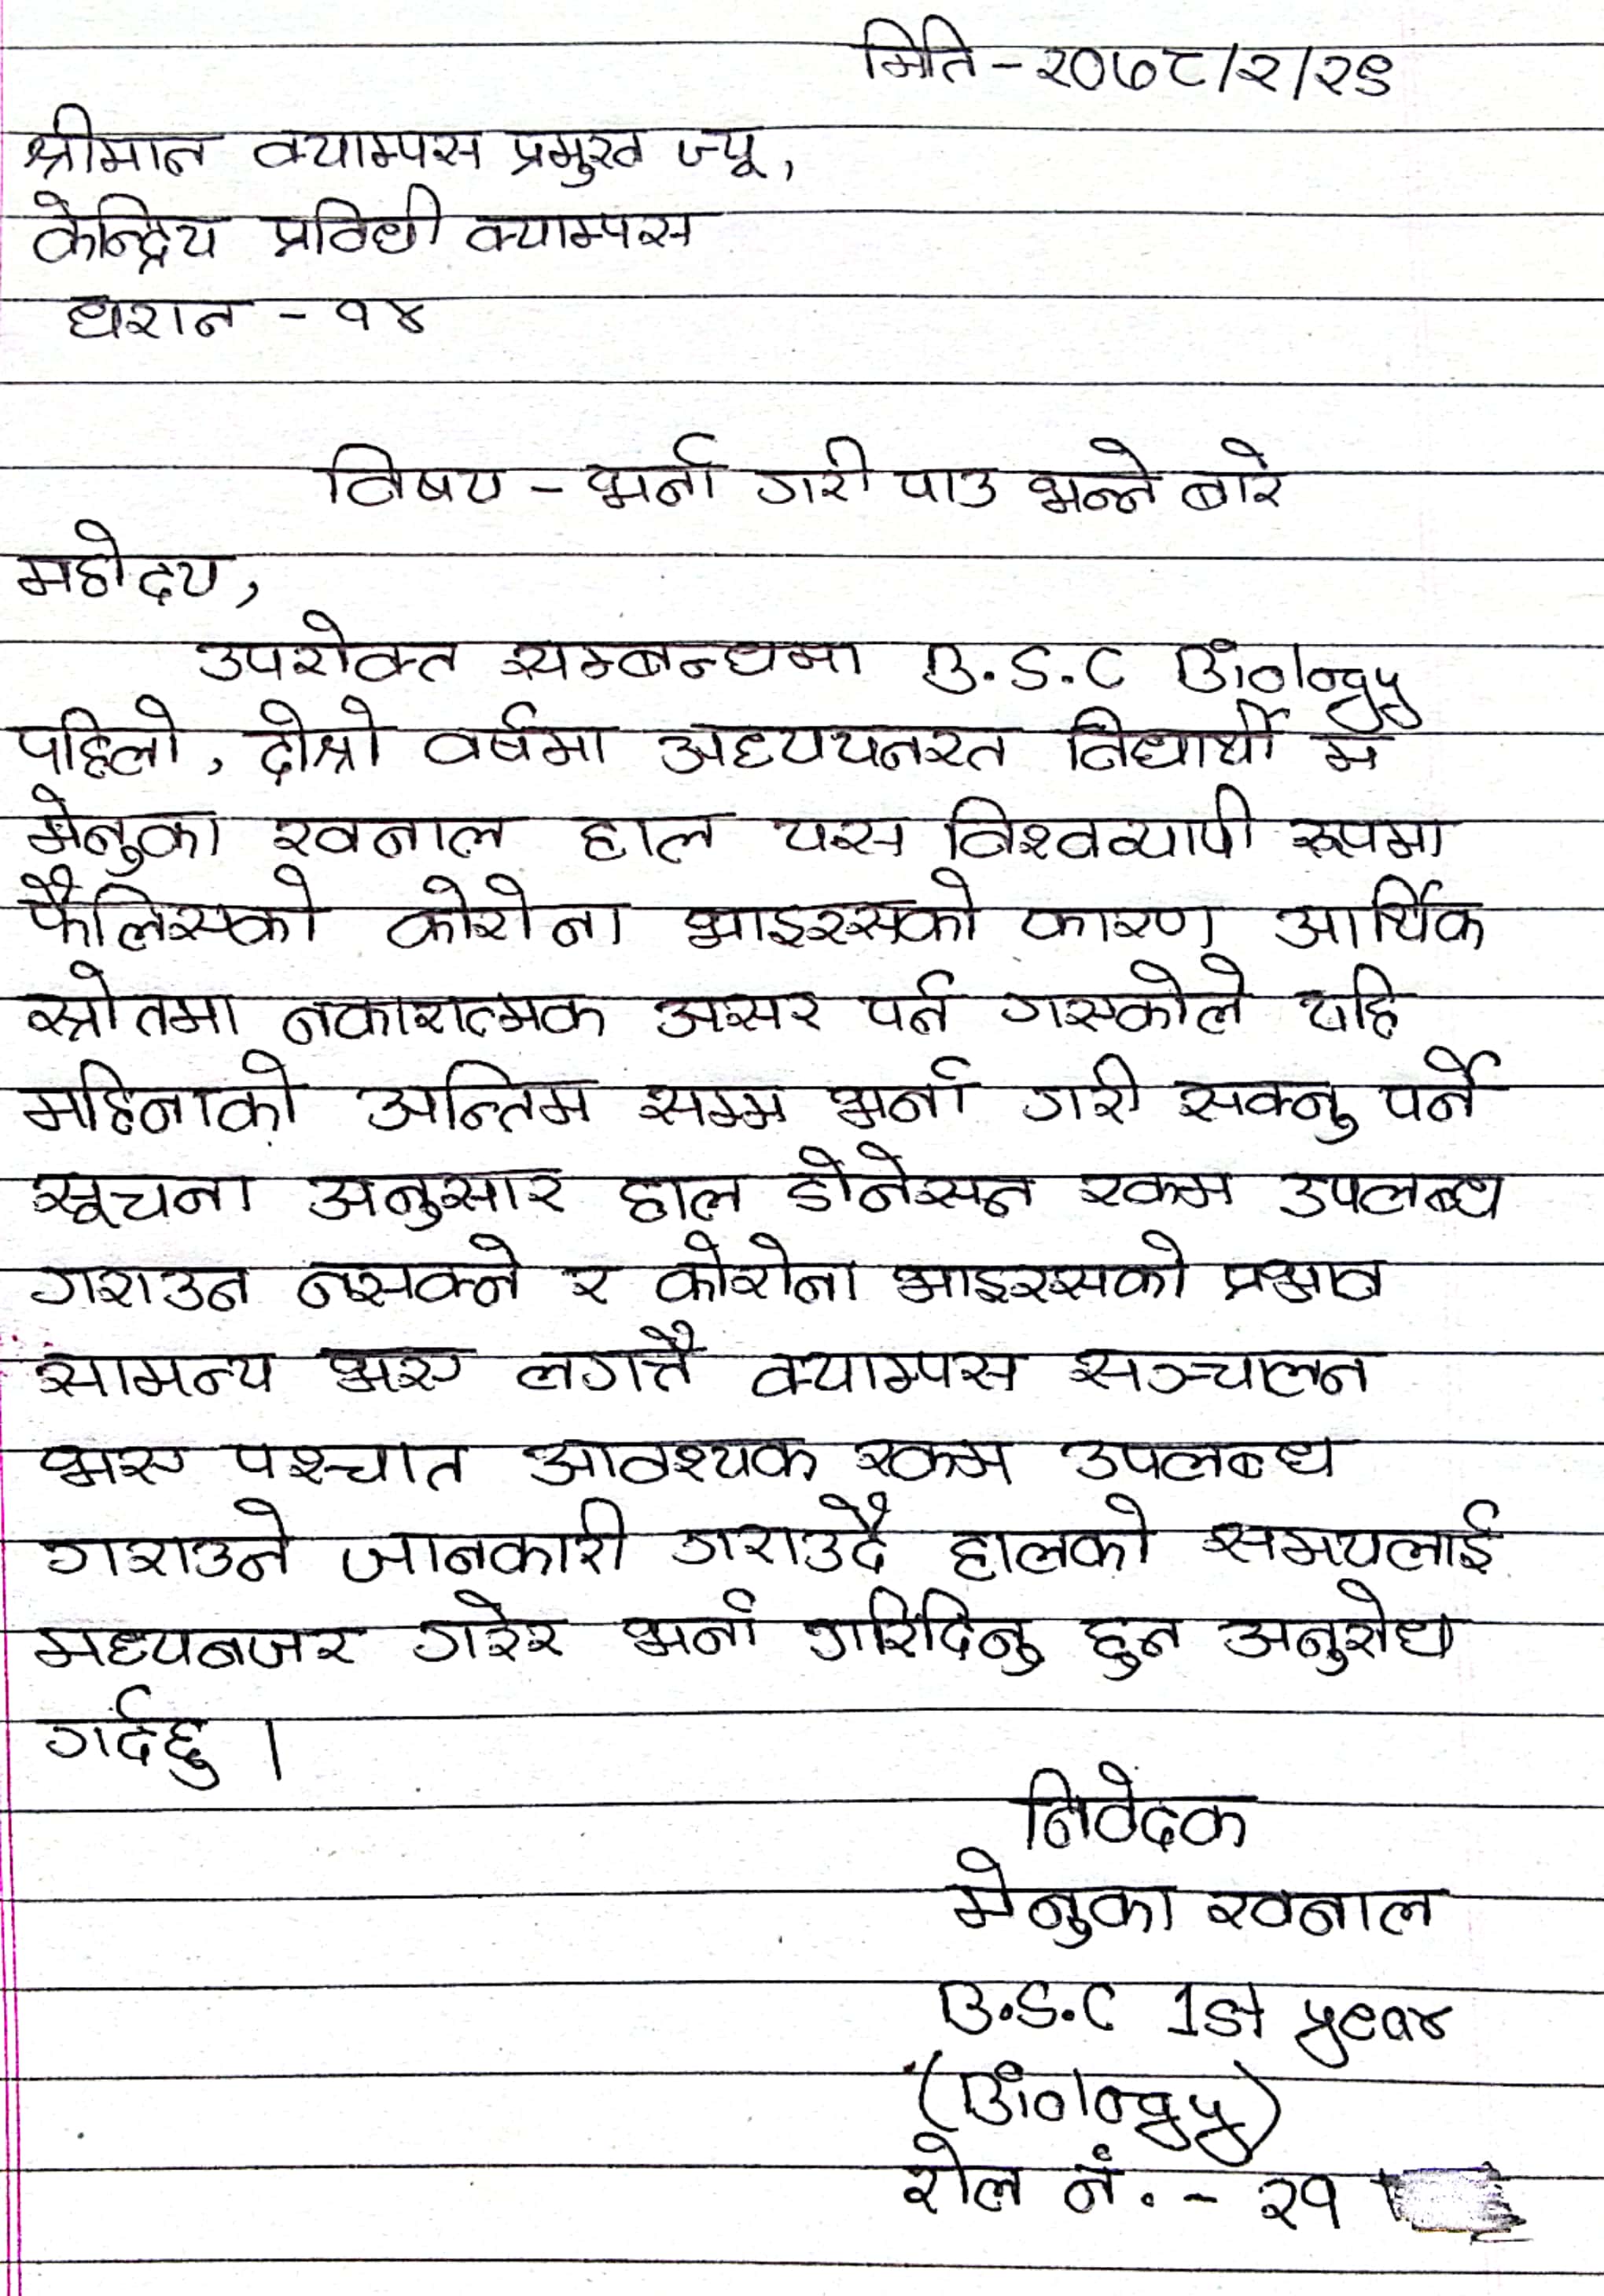 मिति - २०७८/२/२९
श्रीमान क्याम्पस प्रमुख ज्यू,
केन्द्रिय प्रविधी क्याम्पस
धरान - १४
विषय - भर्ना गरी पाउ भन्ने बारे
महोदय,
उपरोक्त सम्बन्धमा B.S.C Biology
पहिलो, दोश्रो वर्षमा अध्ययनरत विधार्थी म
मेनुका खनाल हाल यस विश्वव्यापी रूपमा
फैलिएको कोरोना भाइरसको कारण आर्थिक
स्रोतमा नकारात्मक असर पर्न गएकोले यहि
महिनाको अन्तिम सम्म भर्ना गरी सक्नु पर्ने
सूचना अनुसार हाल डोनेसन रकम उपलब्ध
गराउन नसक्ने र कोरोना भाइरसको प्रभाव
सामन्य भए लगत्तै क्याम्पस सञ्चालन
भए पश्चात आवश्यक रकम उपलब्ध
गराउने जानकारी गराउदै हालको समयलाई
मध्यनजर गरेर भर्ना गरिदिनु हुन अनुरोध
गर्दछु ।
निवेदक
मेनुका खनाल
B.S.C 1st year
(Biology)
रोल नं. - २१